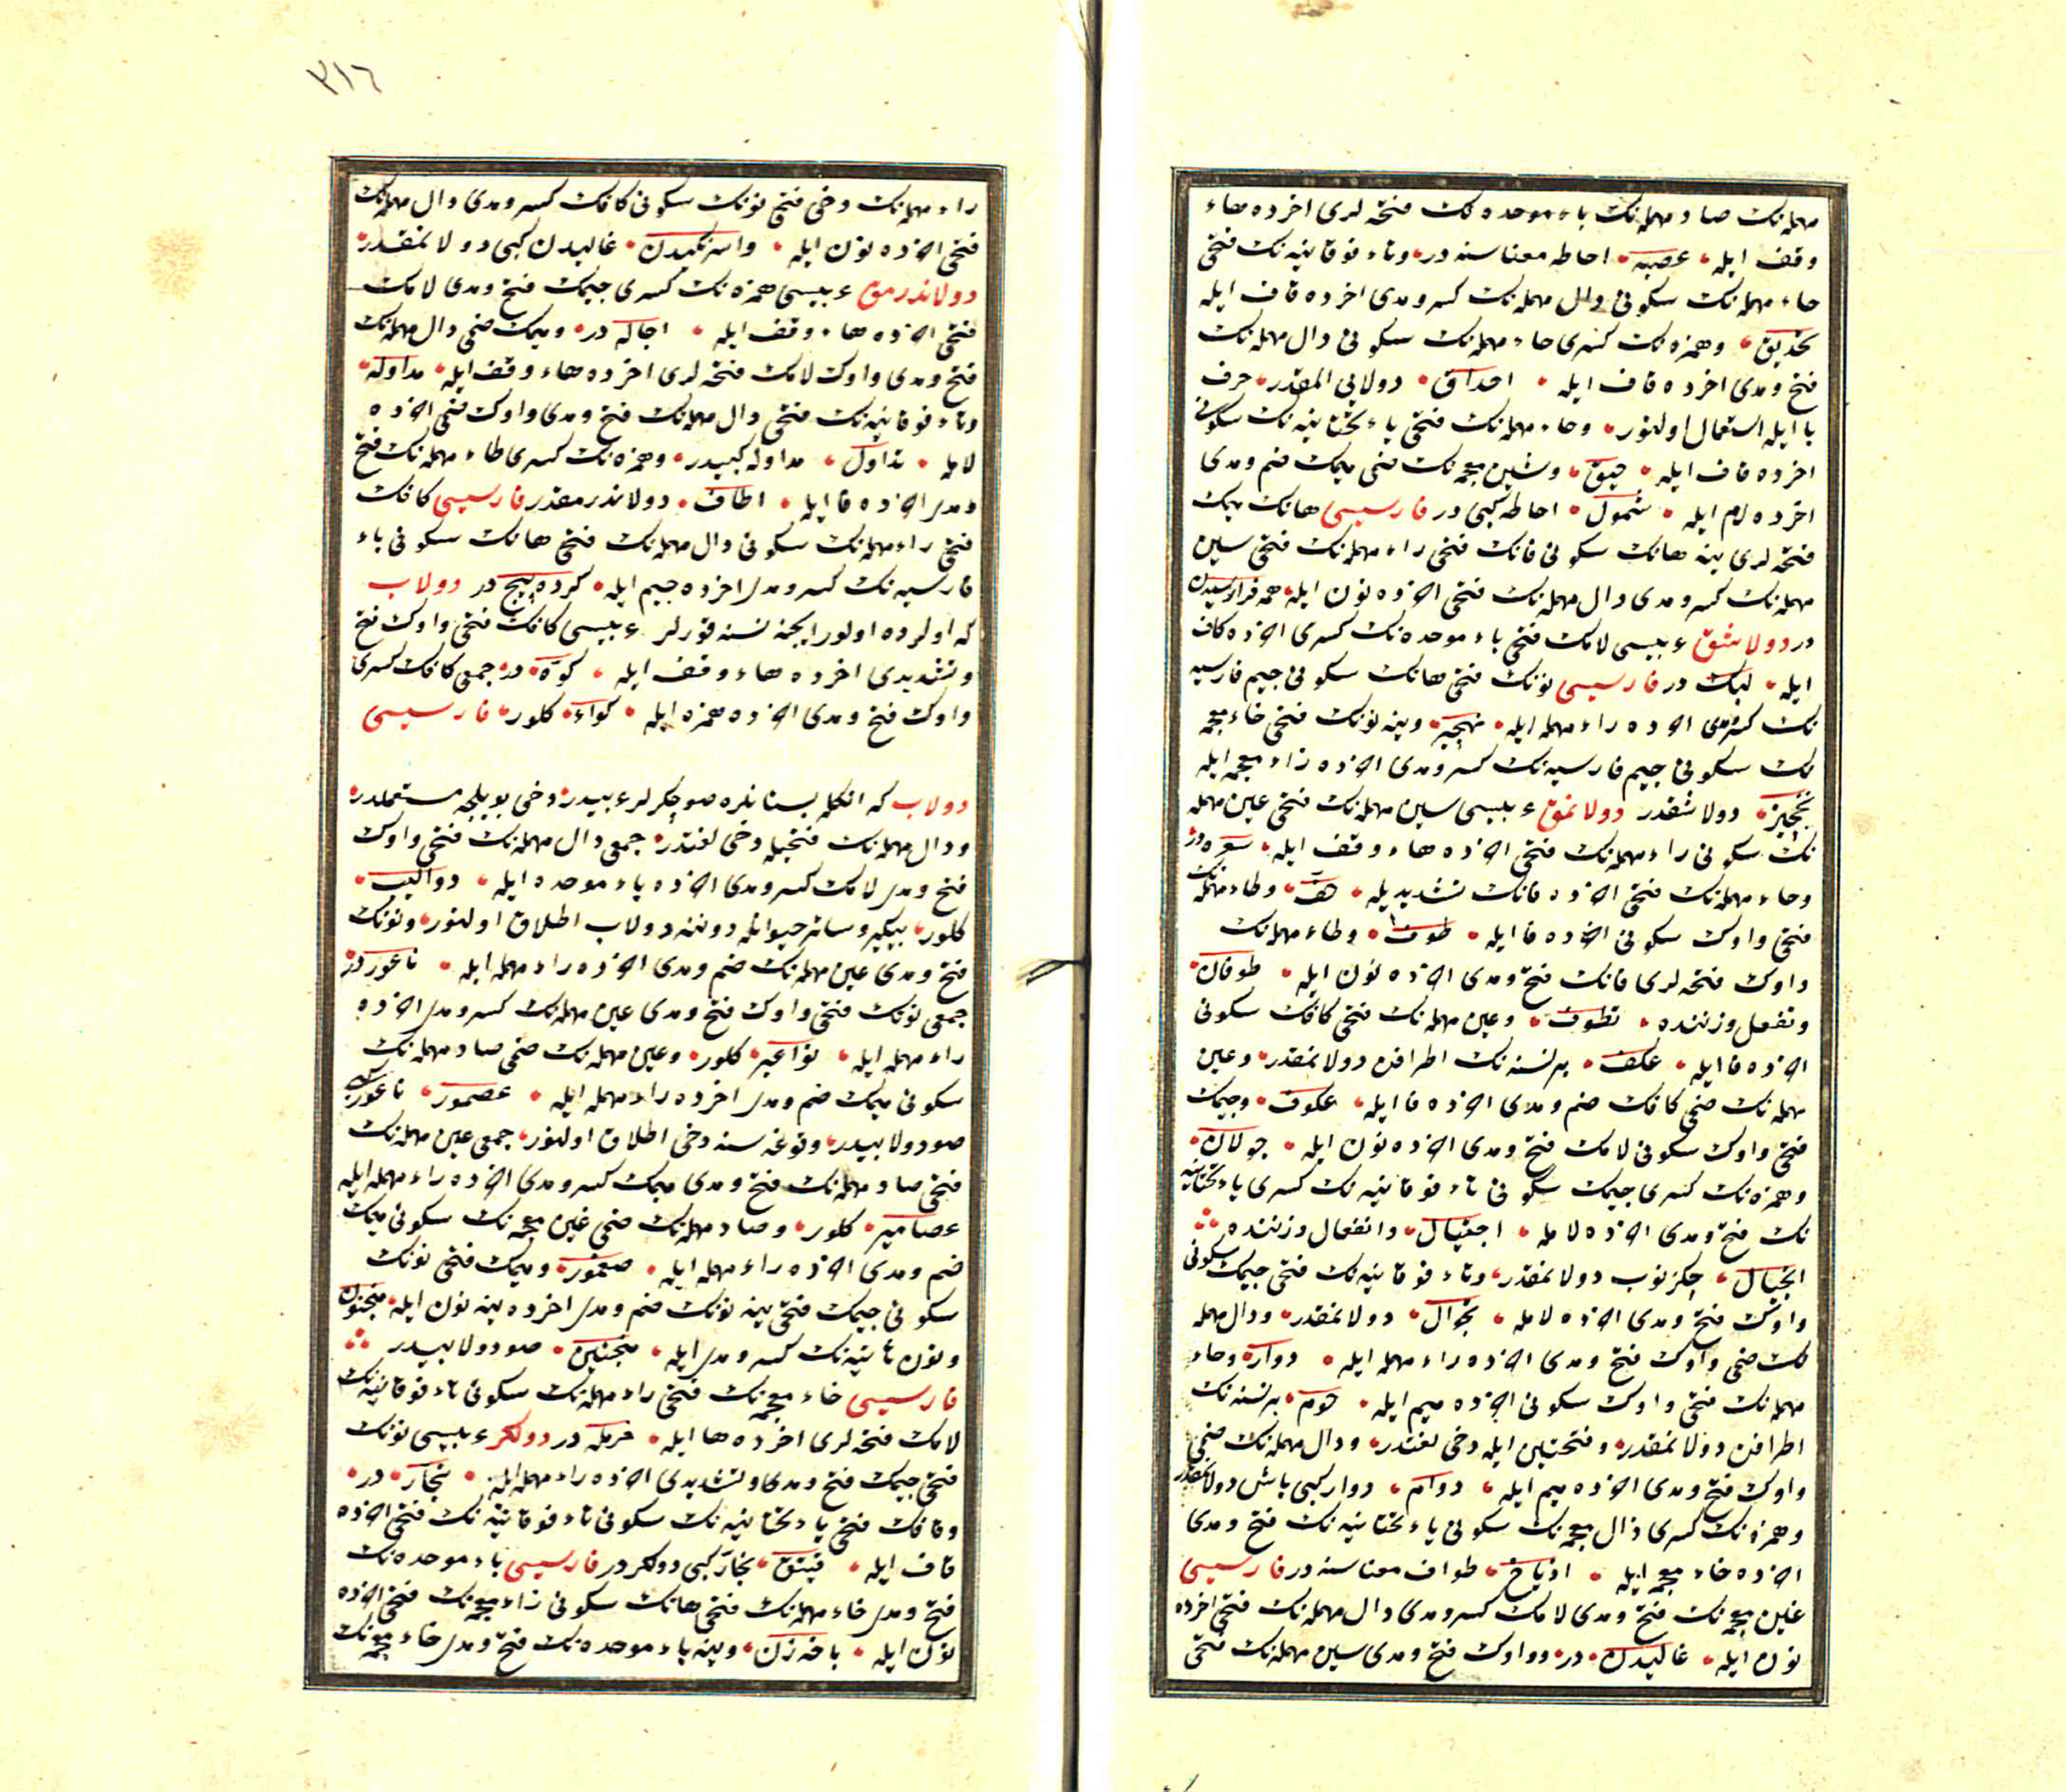 مهمله‌نک صاد مهمله‌نک باء موحده نک فتحه لری اخرده هاء
وقف ایله عصبه احاطه معناسنه در وتاء فوقانیه نک فتحی
حاء مهمله‌نک سکونی دال مهمله‌نک کسر ومدی اخرده قاف ایله
تحدیق وهمزه نک کسری حاء مهمله‌نک سکونی دال مهمله‌نک
فتح ومدی اخرده قاف ایله احداق دولایی المقدر حرف
با ایله استعمال اولنور وحاء مهمله‌نک فتحی یاء تحتانیه نک سکونی
اخرده قاف ایله حیق وشین معجمه‌نک ضمی میمک ضم ومدی
اخرده لام ایله شمول احاطه کبی در فارسیسی هانک میمک
فتحه لری ینه هانک سکونی فانک فتحی راء مهمله‌نک فتحی سین
مهمله‌نک کسر ومدی دال مهمله‌نک فتحی اخرده نون ایله همه فرا رسیدن
در دولاشق عربیسی لامک فتحی باء موحده نک کسری اخرده کاف
ایله لبک در فارسیسی نونک فتحی هانک سکونی جیم فارسیه
نک کسر ومدی اخرده راء مهمله ایله نهجیر وینه نونک فتحی خاء معجمه
نک سکونی جیم فارسیه نک کسر ومدی اخرده زاء معجمه ایله
نخجیز دولاشقدر دولانمق عربیسی سین مهمله‌نک فتحی عین مهمله
نک سکونی راء مهمله‌نک فتحی اخرده هاء وقف ایله سعره در
وحاء مهمله‌نک فتحی اخرده فانک تشدیدیله حف وطاء مهمله‌نک
فتحی واوک سکونی اخرده فا ایله طوف وطاء مهمله‌نک
واوک فتحه لری فانک فتح ومدی اخرده نون ایله طوفان
وتفعل وزننده تطوف وعین مهمله‌نک فتحی کافک سکونی
اخرده فا ایله عکف بر نسنه نک اطرافن دولانمقدر وعین
مهمله‌نک ضمی کافک ضم ومدی اخرده فا ایله عکوف وجیمک
فتحی واوک سکونی لامک فتح ومدی اخرده نون ایله جولان
وهمزه نک کسری جیمک سکونی تاء فوقانیه نک کسری یاء تحتانیه
نک فتح ومدی اخرده لامله اجتیال وانفعال وزننده
انجیال چکزنوب دولانمقدر وتاء فوقانیه نک فتحی جیمک سکونی
واوک فتح ومدی اخرده لامله تجوال دولانمقدر ودال مهمله
نک ضمی واوک فتح ومدی اخرده راء مهمله ایله دوار وحاء
مهمله‌نک فتحی واوک سکونی اخرده میم ایله حوم بر نسنه نک
اطرافن دولانمقدر وفتحتین ایله دخی لغتدر ودال مهمله‌نک ضمی
واوک فتح ومدی اخرده میم ایله دوام دوار کبی باش دولانمقدر
وهمزه نک کسری ذال معجمه‌نک سکونی یاء تحتانیه نک فتح ومدی
اخرده خاء معجمه ایله اذیاخ طواف معناسنه در فارسیسی
غین معجمه‌نک فتح ومدی لامک کسر ومدی دال مهمله‌نک فتحی اخرده
نون ایله غالیدن در وواوک فتح ومدی سین مهمله‌نک فتحی
٣١٦
راء مهمله‌نک دخی فتحی نونک سکونی کافک کسر ومدی دال مهمله‌نک
فتحی اخرده نون ایله واسرنکیدن غالیدن کبی دولانمقدر
دولاندرمق عربیسی همزه نک کسری جیمک فتح ومدی لامک
فتحی اخرده هاء وقف ایله اجاله در ومیمک ضمی دال مهمله‌نک
فتح ومدی واوک لامک فتحه لری اخرده هاء وقف ایله مداوله
وتاء فوقانیه نک فتحی دال مهمله‌نک فتح ومدی واوک ضمی اخرده
لامله تداول مداوله کبیدر وهمزه نک کسری طاء مهمله‌نک فتح
ومدی اخرده فا ایله اطاف دولاندرمقدر فارسیسی کافک
فتحی راء مهمله‌نک سکونی دال مهمله‌نک فتحی هانک سکونی باء
فارسیه نک کسر ومدی اخرده جیم ایله کرده پیچ در دولاب
که اولرده اولور ایچنه نسنه قورلر عربیسی کافک فتحی واوک فتح
وتشدیدی اخرده هاء وقف ایله کوه در جمعی کافک کسری
واوک فتح ومدی اخرده همزه ایله کواء کلور فارسیسی
دولاب که انکله بستانلره صو چکرلر عربیدر دخی بویلجه مستعملدر
ودال مهمله‌نک فتحیله دخی لغتدر جمعی دال مهمله‌نک فتحی واوک
فتح ومدی لامک کسر ومدی اخرده باء موحده ایله دوالیب
کلور بیکیر وسائر حیوانله دوننه دولاب اطلاق اولنور ونونک
فتح ومدی عین مهمله‌نک ضم ومدی اخرده راء مهمله ایله ناعور در
جمعی نونک فتحی واوک فتح ومدی عین مهمله‌نک کسر ومدی اخرده
راء مهمله ایله نواعیر کلور وعین مهمله‌نک ضمی صاد مهمله‌نک
سکونی میمک ضم ومدی اخرده راء مهمله ایله عصمور ناعور کبی
صو دولابیدر وقوغه سنه دخی اطلاق اولنور جمعی عین مهمله‌نک
فتحی صاد مهمله‌نک فتح ومدی میمک کسر ومدی اخرده راء مهمله ایله
عصامیر کلور وصاد مهمله‌نک ضمی غین معجمه‌نک سکونی میمک
ضم ومدی اخرده راء مهمله ایله صغمور ومیمک فتحی نونک
سکونی جیمک فتحی ینه نونک ضم ومدی اخرده ینه نون ایله منجنون
ونون ثانیه نک کسر ومدی ایله منجنین صو دولابیدر
فارسیسی خاء معجمه‌نک فتحی راء مهمله‌نک سکونی تاء فوقانیه نک
لامک فتحه لری اخرده ها ایله خرتله در دولکر عربیسی نونک
فتحی جیمک فتح ومدی وتشدیدی اخرده راء مهمله ایله نجار در
وفافک فتحی یاء تحتانیه نک سکونی تاء فوقانیه نک فتحی اخرده
قاف ایله فیتق نجار کبی دولکر در فارسیسی باء موحده نک
فتح ومدی خاء مهمله‌نک فتحی هانک سکونی زاء معجمه‌نک فتحی اخرده
نون ایله باخه زن وینه باء موحده نک فتح ومدی خاء معجمه‌نک